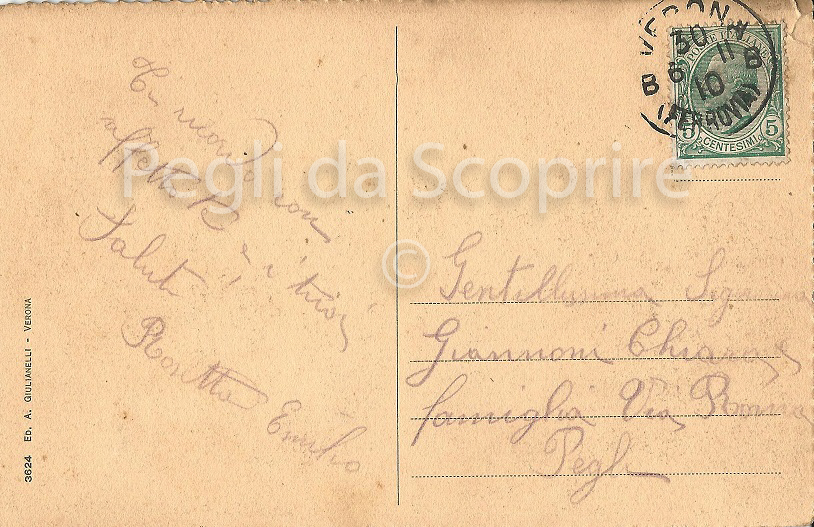 Ti ricordo con
affetto
Saluti
Rosetta Emilio
3624 ED. A. GIULIANELLI - VERONA
VERONA
30 11
B 6 B
10
(FERROVIA)
POSTE ITALIANE
5 CENTESIMI 5
Gentilissima Signora
Giannoni Chiara e
famiglia Via Roma
Pegli
Pegli da Scoprire
©